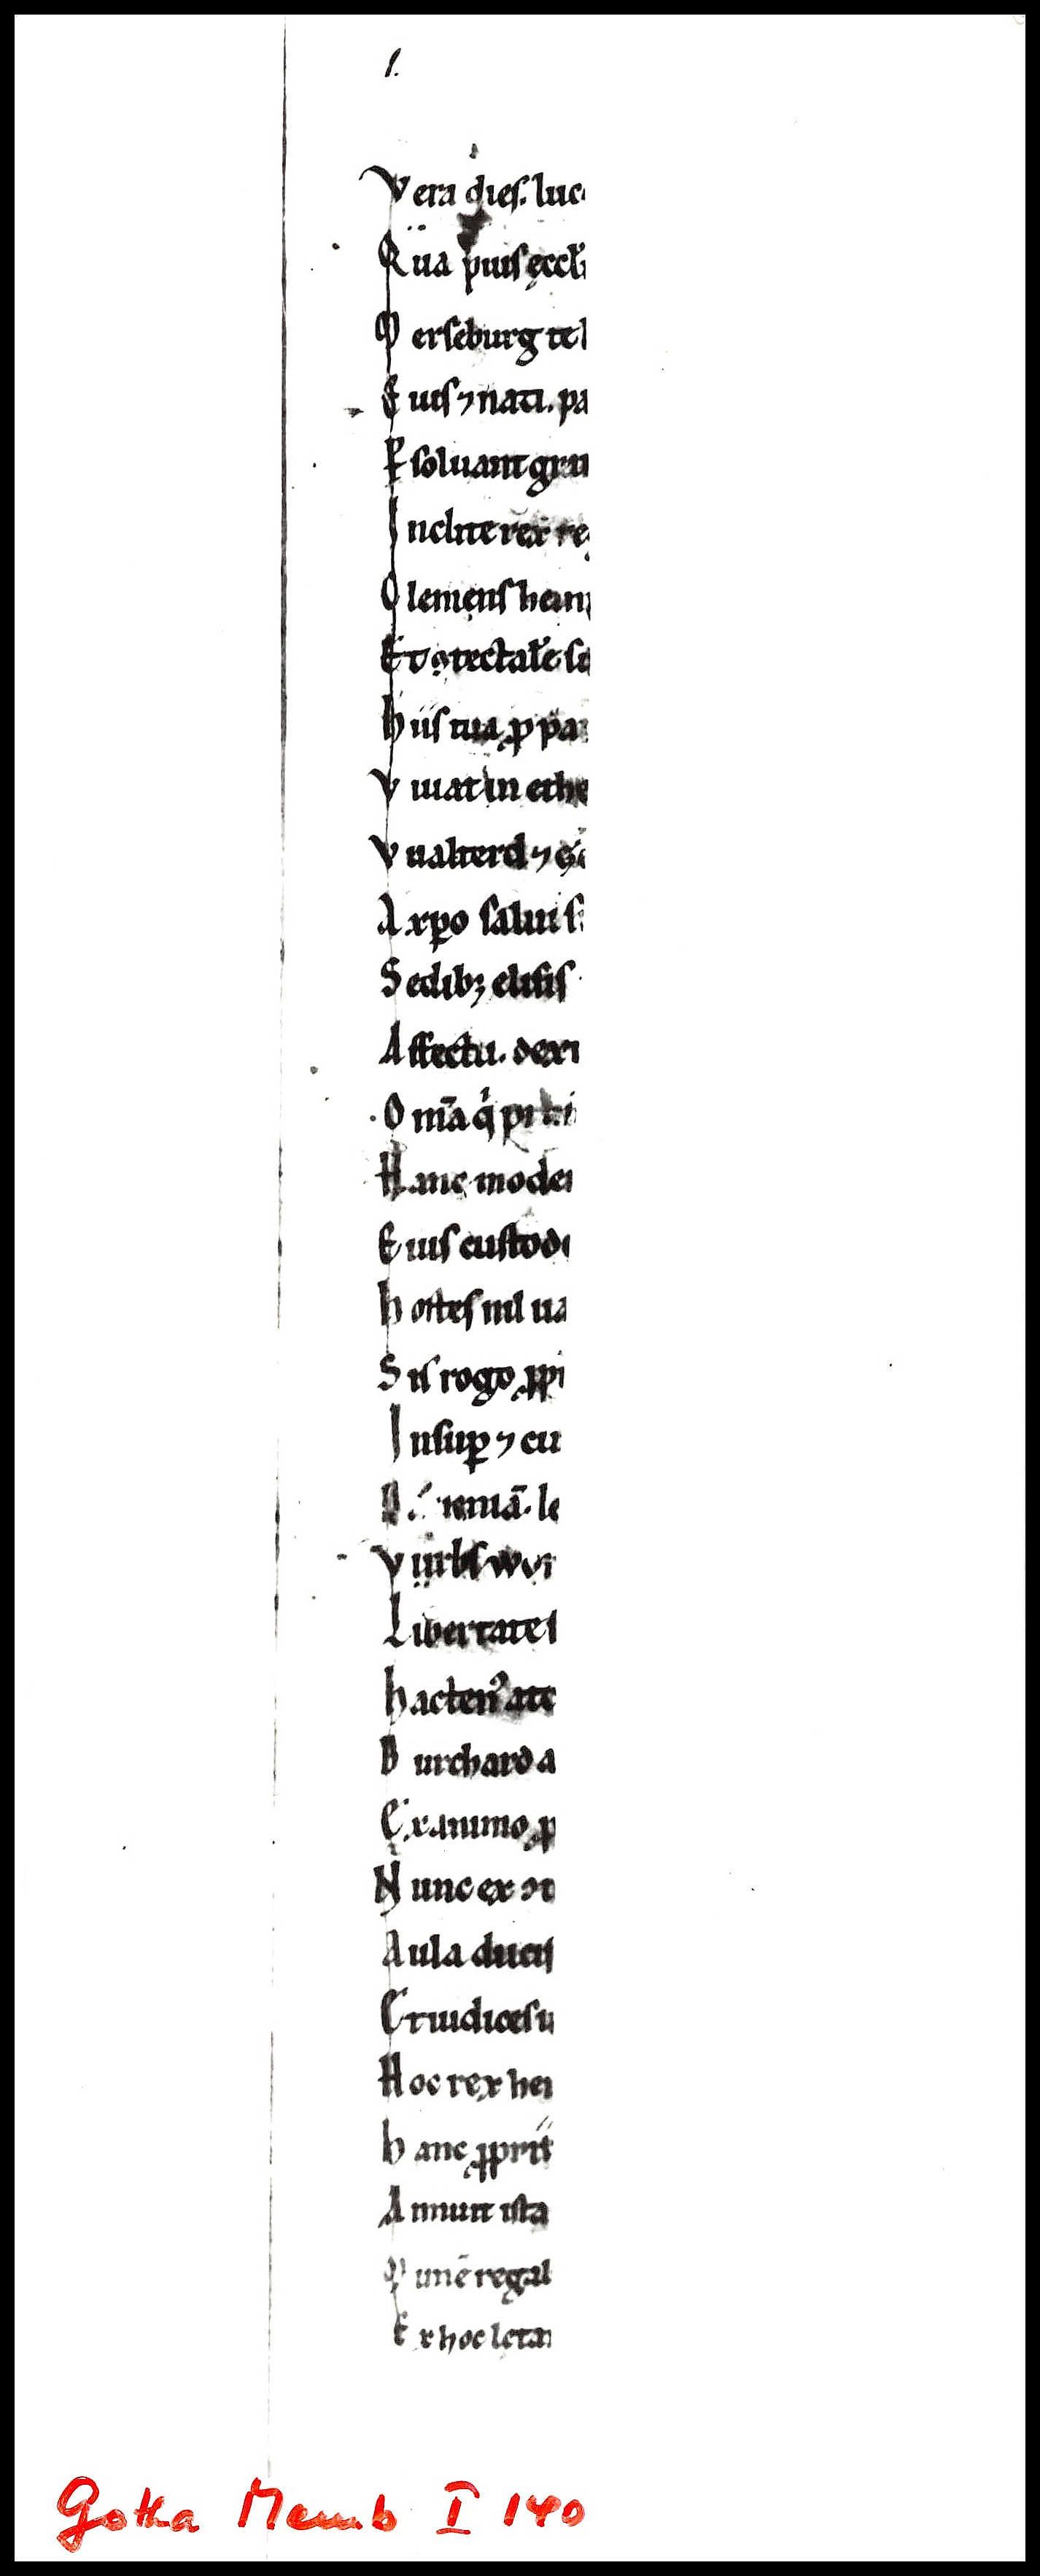 1.
Vera dies. luc
Qua pius eccl
Merseburg te
Euis ⁊ nati. pa
soluant gra
Inclite rex re
Clemens hein
hiis tua ꝓ pa
Viuat in ethe
Vualterd ⁊
A xp̄o salui
Sedib; elisis
Affectu. dext
Om̄a
Hanc mode
Eius custod
hostes nil ua
Sis rogo ꝓpi
Insup̱ ⁊ cu
ueniā. le
V urbs wor
Libertate
hacten⁹ att
Burchard a
Ex animo ꝓ
Nunc ex
Aula ducis
Et iudices
Hoc rex hei
hanc ꝓprii
Annuit ista
unē regal
Ex hoc leta
Gotha Memb I 140